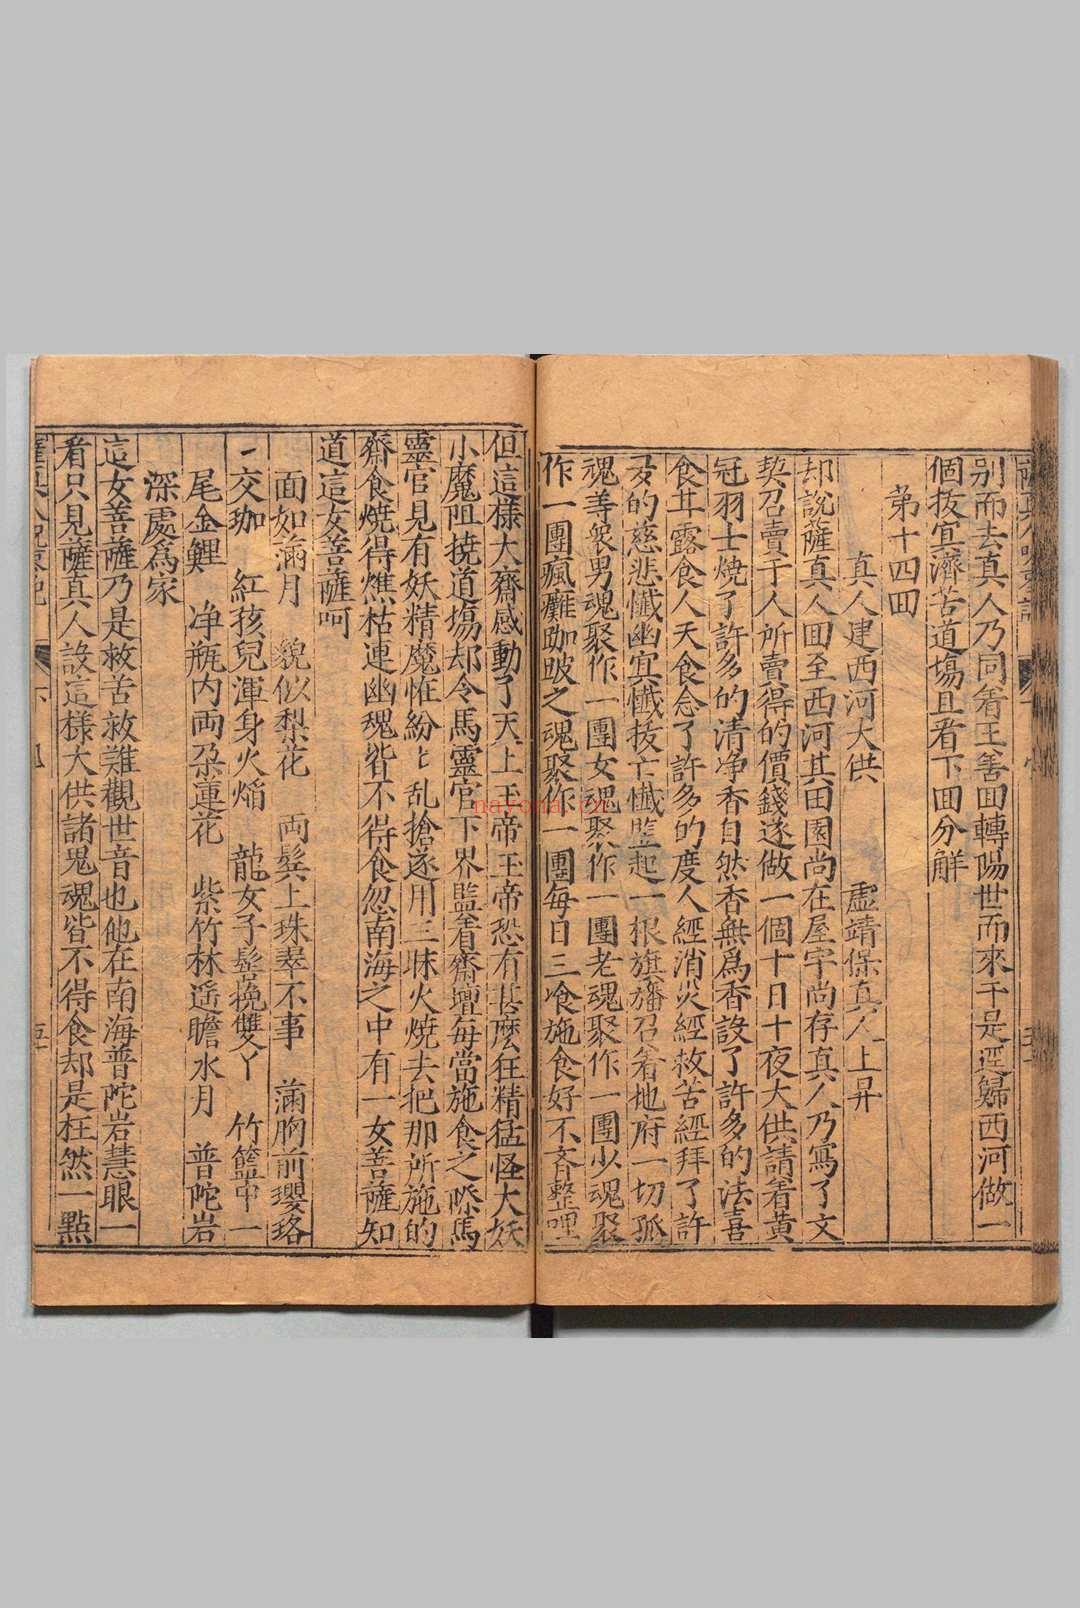 別而去真人乃同着王善囬轉陽世而來于是逕歸西河做一
個拔冥濟苦道場且看下囬分解
第十四囬
真人建西河大供 虛靖保真人上昇
却說薩真人囬至西河其田園尚在屋宇尚存真人乃寫了文
契召賣于人所賣得的價錢遂做一個十日十夜大供請着黃
冠羽士燒了許多的清净香自然香無為香設了許多的法喜
食甘露食人天食念了許多的度人經消災經救苦經拜了許
多的慈悲懺幽冥懺拔亡懺監起一根旗旛召着地府一切孤
魂等衆男魂聚作一團女魂聚作一團老魂聚作一團少魂聚
作一團瘋癱跏跛之魂聚作一團每日三飡施食好不齊整哩
但這樣大齋感動了天上玉帝玉帝恐有甚麽狂精猛怪大妖
小魔阻撓道塲却令馬靈官下界監着齋壇每當施食之際馬
靈官見有妖精魔怪紛〻乱搶遂用三昧火燒去把那所施的
齋食燒得燋枯連幽魂皆不得食忽南海之中有一女菩薩知
道這女菩薩呵
面如滿月 貌似梨花 両髩上珠翠不事 滿胸前瓔珞
交珈 紅孩兒渾身火焰 龍女子髻挽雙丫 竹籃中一
尾金鯉 净瓶内両朶蓮花 紫竹林遥瞻水月 普陀岩
深處為家
這女菩薩乃是救苦救難觀世音也他在南海普陀岩慧眼一
看只見薩真人設這樣大供諸鬼魂皆不得食却是枉然一點
nayona.cn